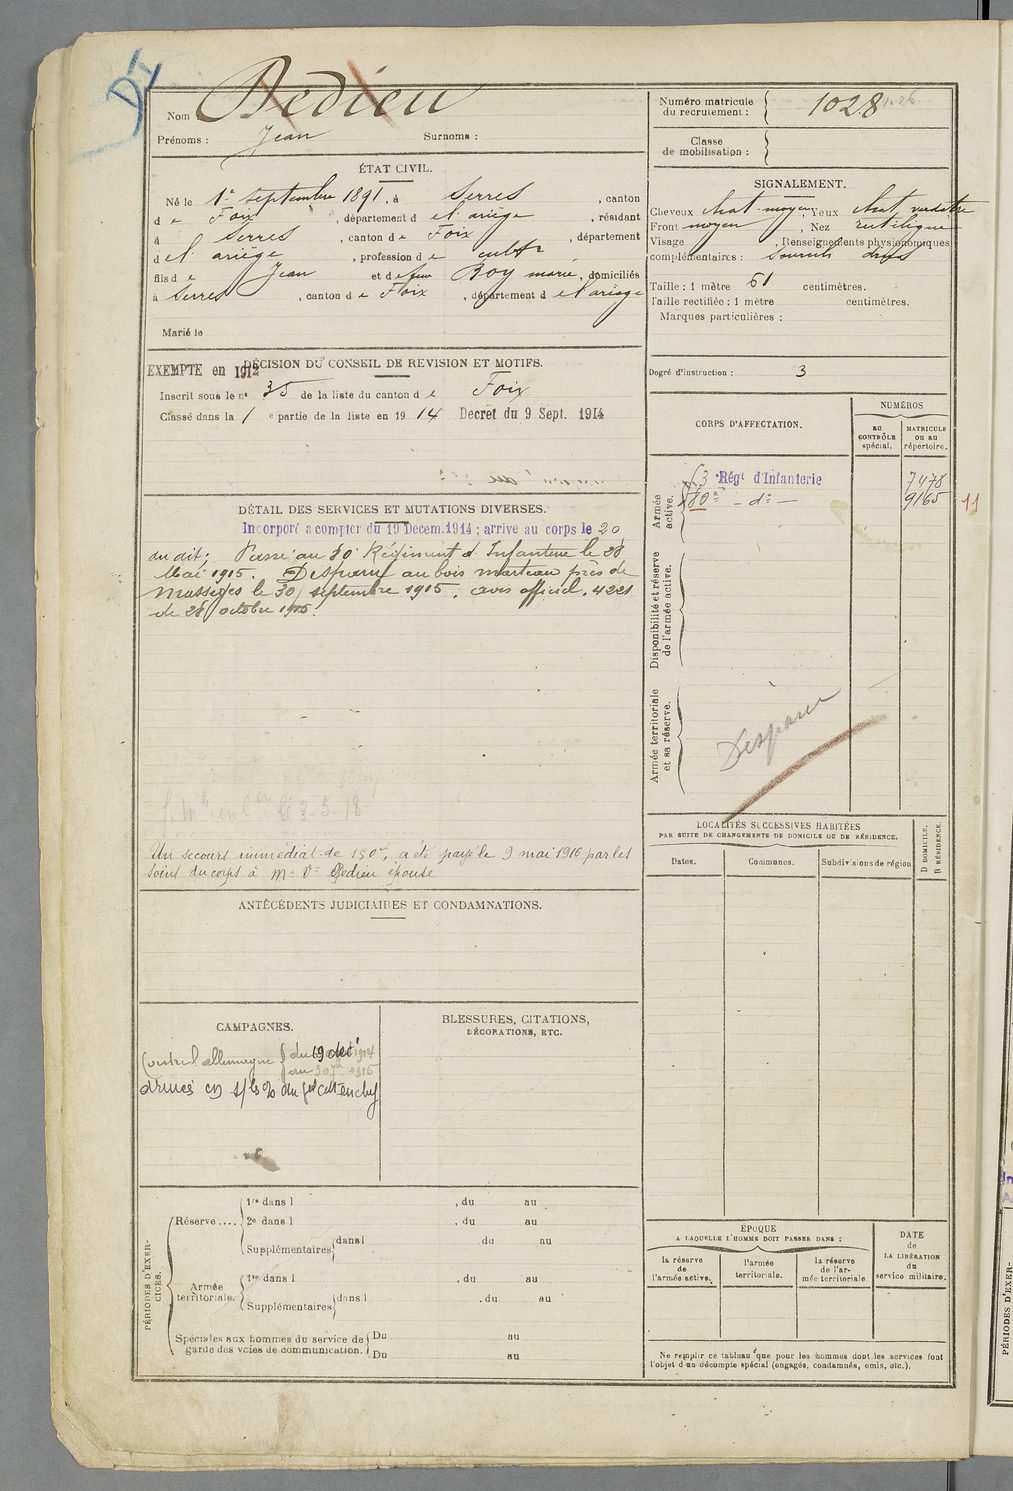 DI
Nom Dedieu
Prénoms : Jean Surnoms :
Numéro matricule du recrutement : 1028
Classe de mobilisation :
ÉTAT CIVIL.
Né le 1er septembre 1891, à Serres, canton
de Foix, département de l'ariège, résidant
à Serres, canton de Foix, département
de l'ariège, profession de cultr
fils de Jean et de feue Roy marie, domiciliés
à Serres, canton de Foix, département de l'ariège
Marié le
SIGNALEMENT.
Cheveux chat. moyen, Yeux chat. verdatre
Front moyen, Nez rectiligne
Visage , Renseignements physionomiques
complémentaires : Sourcils drus
Taille : 1 mètre 61 centimètres.
Taille rectifiée : 1 mètre centimètres.
Marques particulières :
Degré d'instruction : 3
DÉCISION DU CONSEIL DE REVISION ET MOTIFS.
EXEMPTE en 1912
Inscrit sous le n° 35 de la liste du canton de Foix
Classé dans la 1e partie de la liste en 1914 Decret du 9 Sept. 1914
CORPS D'AFFECTATION.
NUMÉROS
au CONTRÔLE spécial.
MATRICULE ou au répertoire.
Armée active.
Disponibilité et réserve de l'armée active.
Armée territoriale et sa réserve.
Régt d'Infanterie 7478
80e - d° - 9165
11
Disparu
DÉTAIL DES SERVICES ET MUTATIONS DIVERSES.
Incorporé a compter du 19 Decem. 1914 ; arrivé au corps le 20
du dit ; Passé au 80e Régiment d'Infanterie le 28
Mai 1915. Disparu au bois marteau près de
Massiges le 30 septembre 1915. avis officiel. 4221
de 28 octobre 1915.
Un secours immédiat de 150f, a été payé le 9 mai 1916 par les
soins du corps à Me Ve Dedieu épouse
ANTÉCÉDENTS JUDICIAIRES ET CONDAMNATIONS.
CAMPAGNES.
Contre l'allemagne du 19 dec 1914
au 30 1915
armées
BLESSURES, CITATIONS, DÉCORATIONS, ETC.
LOCALITÉS SUCCESSIVES HABITÉES
PAR SUITE DE CHANGEMENTS DE DOMICILE OU DE RÉSIDENCE.
Dates. Communes. Subdivisions de région D DOMICILE. R RÉSIDENCE.
PÉRIODES D'EXERCICES.
Réserve....
1re dans l , du au
2e dans l , du au
Supplémentaires dans l , du au
Armée territoriale.
1re dans l , du au
Supplémentaires dans l , du au
Spéciales aux hommes du service de garde des voies de communication.
Du au
Du au
ÉPOQUE
A LAQUELLE L'HOMME DOIT PASSER DANS :
la réserve de l'armée active.
l'armée territoriale.
la réserve de l'armée territoriale
DATE de LA LIBÉRATION du service militaire.
Ne remplir ce tableau que pour les hommes dont les services font
l'objet d'un décompte spécial (engagés, condamnés, omis, etc.).
PÉRIODES D'EXER-